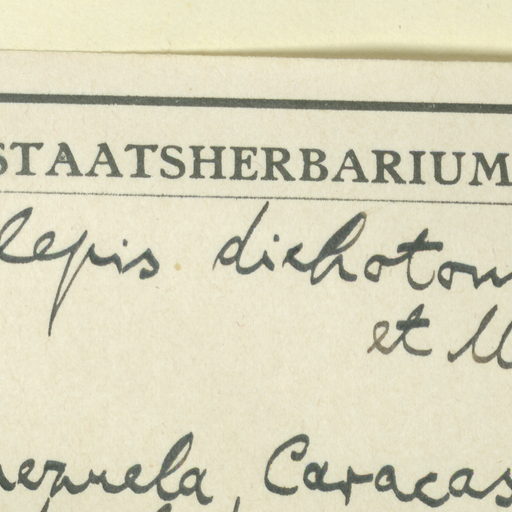 STAATSHERBARIUM
lepis dichotom
et M
nezuela, Caracas